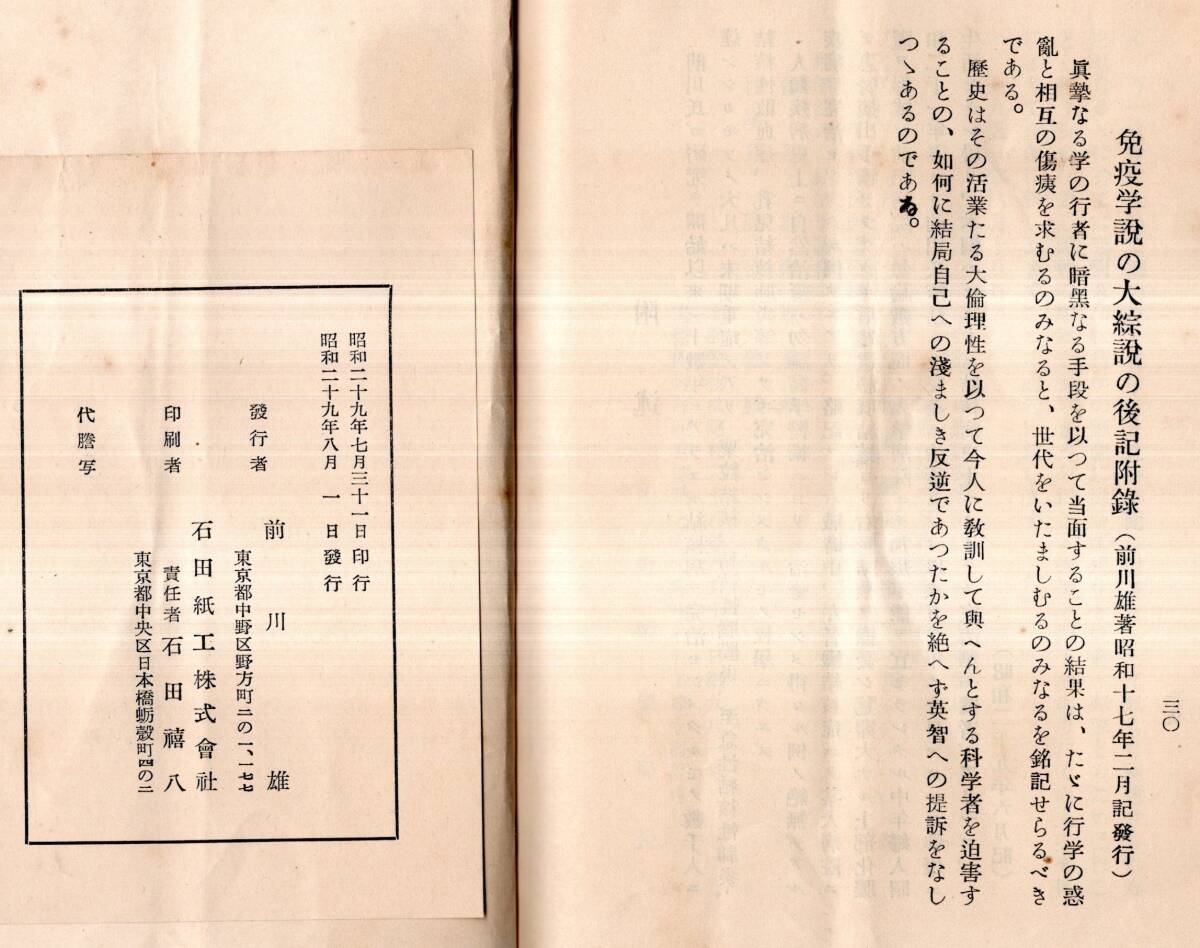 三〇
免疫学說の大綜說の後記附錄(前川雄著昭和十七年二月記發行)
眞摯なる学の行者に暗黑なる手段を以つて当面することの結果は、たゞに行学の惑
亂と相互の傷痍を求むるのみなると、世代をいたましむるのみなるを銘記せらるべき
である。
歷史はその活業たる大倫理性を以つて今人に敎訓して與へんとする科学者を迫害す
ることの、如何に結局自己への淺ましき反逆であつたかを絶へず英智への提訴をなし
つゝあるのである。
昭和二十九年七月三十一日印行
昭和二十九年八月 一 日發行
東京都中野区野方町二の一、一七七
發行者 前川 雄
石田紙工株式會社
印刷者 責任者 石田禧八
東京都中央区日本橋蛎殼町四の二
代謄写